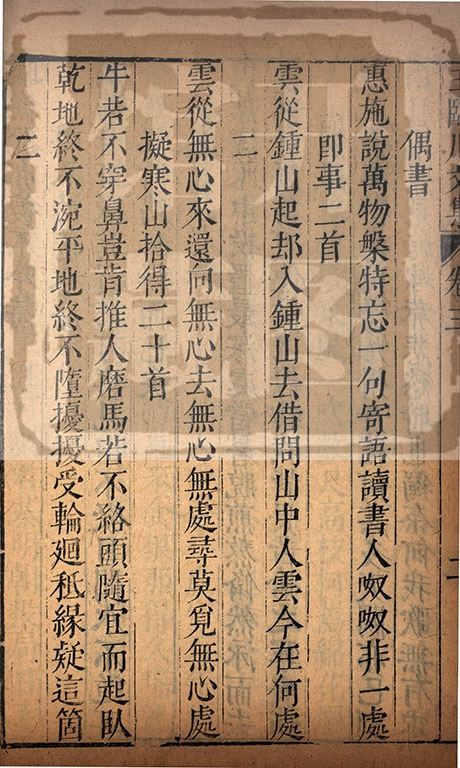 王臨川文集 卷三
偶書
惠施說萬物槃特忘一句寄語讀書人呶呶非一處
即事二首
雲從鍾山起却入鍾山去借問山中人雲今在何處
二
雲從無心來還向無心去無心無處尋莫覓無心處
擬寒山拾得二十首
牛若不穿鼻豈肯推人磨馬若不絡頭隨宜而起臥
乾地終不涴平地終不墮擾擾受輪廻秪緣疑這箇
二